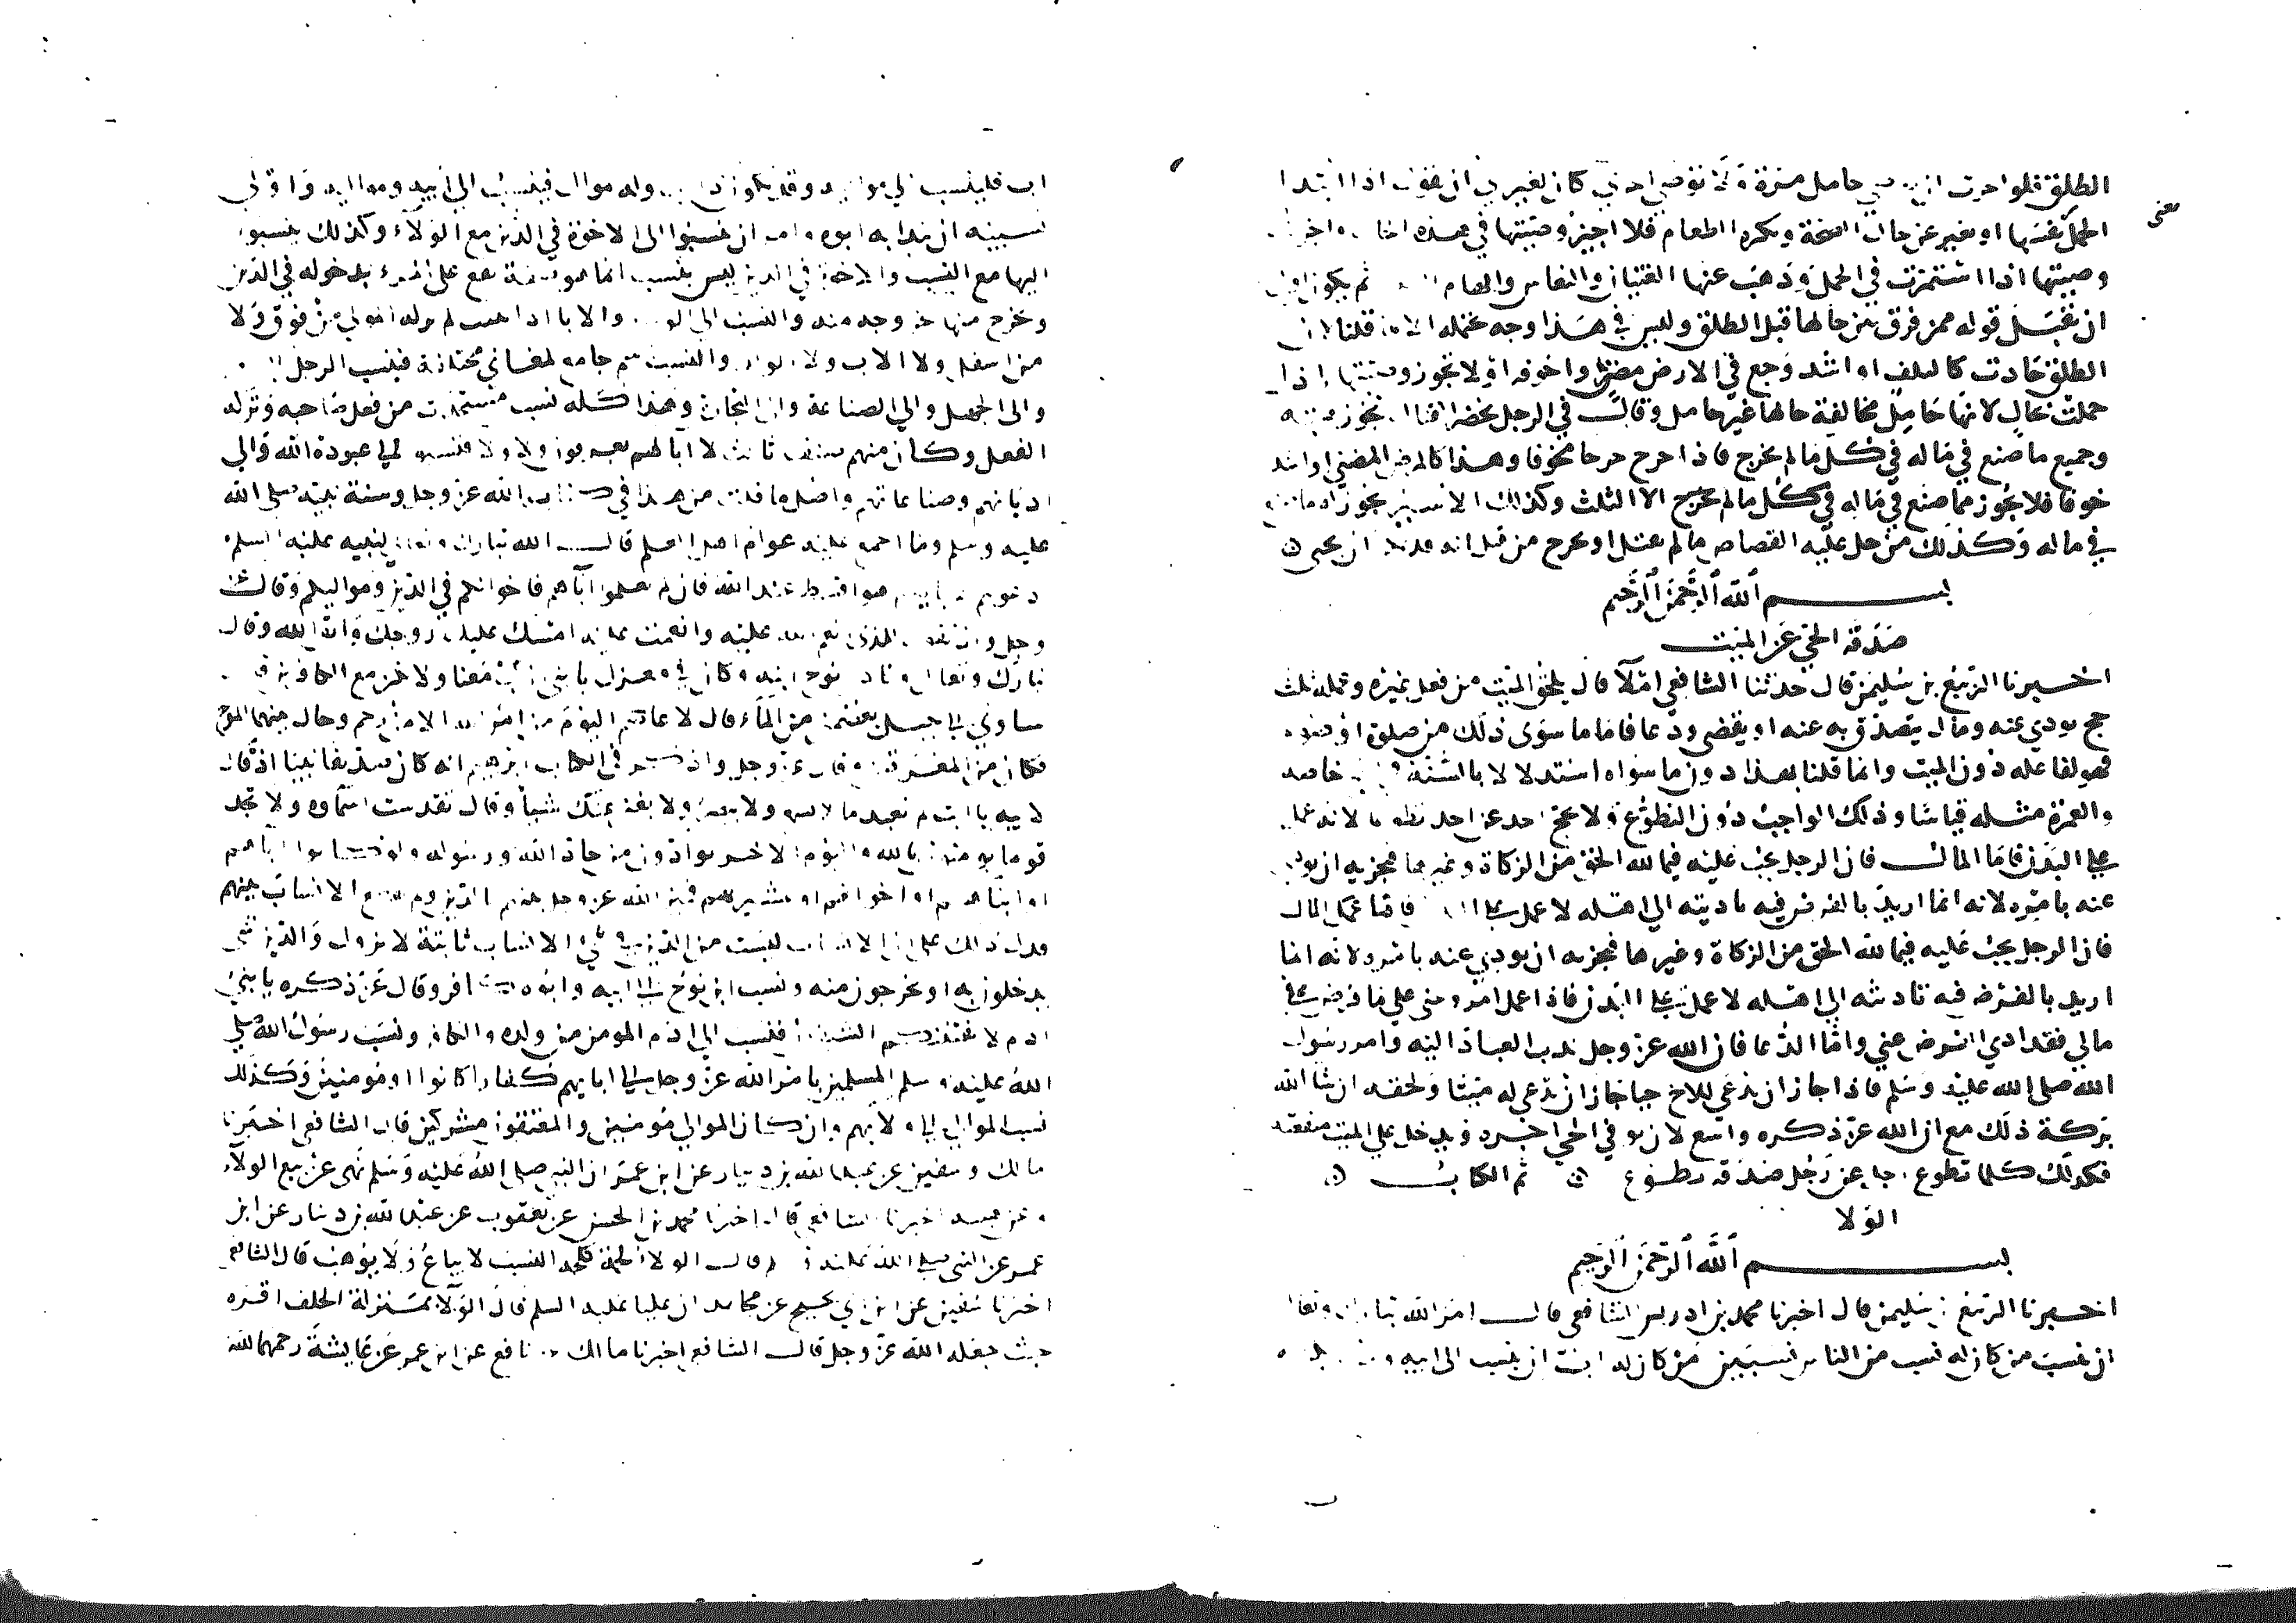 الطلق فلو اجزت ان توصي حامل مرة ولا توصي اخرى كان لغيري ان يقول اذا ابتدا
الحمل تغثيها او تغير عن حال الصحة وتكره الطعام فلا اجيز وصيتها في هذه الحال واجيز
وصيتها اذا استمرت في الحمل وذهب عنها الغثيان والنعاس و الطعام ثم يكون اولى
ان يقبل قوله ممن فرق بين حالها قبل الطلق وليس في هذا وجه يحتمله الا ما قلنا لان
الطلق حادث كالتلف او اشد وجع في الارض مضن واخوفه او لا تجوز وصيتها اذا
حملت بحال لانها حامل مخالفة حالها غير حامل وقال في الرجل يحضر القتال تجوز وصيته
وجميع ما صنع في ماله في كل ما لم يخرج فاذا جرح جرحا مخوفا وهذا كالمرض المضني او اشد
خوفا فلا يجوز مما صنع في ماله في كل ما لم يجرح الا الثلث وكذلك الاسير يجوز له ما صنع
في ماله وكذلك من حل عليه القصاص ما لم يقتل او يجرح من قبل انه قد يمكن ان يحيى
بسم الله الرحمن الرحيم
صدقة الحي عن الميت
اخبرنا الربيع بن سليمن قال حدثنا الشافعي املا قال يلحق الميت من فعل غيره وعمله ثلث
حج يودي عنه ومال يتصدق به عنه او يقضى ودعا فاما ما سوى ذلك من صلوة او صيام
فهو لفاعله دون الميت وانما قلنا بهذا دون ما سواه استدلالا بالسنة في خاصه
والعمرة مثله قياسا وذلك الواجب دون التطوع ولا يحج احد عن احد تطوعا لانه عمل
على البدن فاما المال فان الرجل يجب عليه فيما له الحق من الزكاة وغيرها فيجزيه ان يودى
عنه بامره لانه انما اريد بالفرض فيه تاديته الى اهله لا عمل على البدن فاذا عمل المال
فان الرجل يجب عليه فيما له الحق من الزكاة وغيرها فيجزيه ان يودي عنه بامره لانه انما
اريد بالفرض فيه تاديته الى اهله لا عمل على البدن فاذا عمل امرو عني على ما فرض على
مالي فقد ادي الفرض عني واما الدعا فان الله عز وجل ندب العباد اليه وامر رسول
الله صلى الله عليه وسلم فاذا جاز ان يدعي للاخ حيا جاز ان يدعي له ميتا ولحقه ان شا الله
بركة ذلك مع ان الله عز ذكره واسع لان يوفي الحي اجره ويدخل على الميت منفعته
فكذلك كلما تطوع رجل عن رجل صدقة تطوع تم الكتاب
الولا
بسم الله الرحمن الرحيم
اخبرنا الربيع بن سليمن قال اخبرنا محمد بن ادريس الشافعي قال امر الله تبارك وتعالى
ان ينسب من كان له نسب من الناس نسبين من كان له اب ان ينسب الى ابيه ومن لم يكن له
معنى
اب فلينسب الى مواليه وقد يكون ذا اب وله موال فينسب الى ابيه ومواليه واولى
نسبيه ان يبدا به ابوه وامر ان ينسبوا الى الاخوة في الدين مع الولاء وكذلك ينسبون
اليها مع النسب والاخوة في الدين ليس بنسب انما هو صفة تقع على المرء بدخوله في الدين
وتخرج منها خروجه منه والنسب الى الولاء والابا اذا ثبت لم يزله المولى من فوق ولا
من اسفل ولا الاب ولا الولد والنسب اسم جامع لمعاني مختلفة فينسب الرجل الى
والى الجهل والى الصناعة والى التجارة وهذا كله نسب مستحدث من فعل صاحبه وتركه
الفعل وكان منهم صنف ثالث لا ابا لهم يعرفون ولا ولا فنسبوا الى عبودة الله والى
اديانهم وصناعاتهم واصل ما قلت من هذا في كتاب الله عز وجل وسنة نبيه صلى الله
عليه وسلم وما اجمع عليه عوام اهل العلم قال الله تبارك وتعالى لنبيه عليه السلم
ادعوهم لابايهم هو اقسط عند الله فان لم تعلموا آباهم فاخوانكم في الدين ومواليكم وقال عز
وجل واذ تقول للذى انعم الله عليه وانعمت عليه امسك عليك زوجك واتق الله وقال
تبارك وتعالى ونادى نوح ابنه وكان في معزل يا بني اركب معنا ولا تكن مع الكافرين قال
ساوي الى جبل يعصمني من الماء قال لا عاصم اليوم من امر الله الا من رحم وحال بينهما الموج
فكان من المغرقين وقال عز وجل واذكر في الكتاب ابرهيم انه كان صديقا نبيا اذ قال
لابيه يا ابت لم تعبد ما لا يسمع ولا يبصر ولا يغني عنك شيأ وقال تقدست اسماوه لا تجد
قوما يومنون بالله واليوم الاخر يوادون من حاد الله ورسوله ولو كانوا اباهم
او ابناهم او اخوانهم او عشيرتهم فميز الله عز وجل بينهم بالدين ولم يقطع الانساب بينهم
فدل ذلك على ان الانساب ليست من الدين في شيء الانساب ثابتة لا تزول والدين شي
يدخلون به او يخرجون منه ونسب ابن نوح الى ابيه وابوه كافر وقال عز ذكره يا بني
ادم لا يفتننكم الشيطان فنسب الى ادم المومن من ولده والكافر ونسب رسول الله صلى
الله عليه وسلم المسلمين بامر الله عز وجل الى ابايهم كفارا كانوا او مومنين وكذلك
نسب الموالي الى ولايهم وان كان الموالي مومنين والمعتقون مشركين قال الشافعي اخبرنا
مالك وسفين عن عبد الله بن دينار عن ابن عمر ان النبي صلى الله عليه وسلم نهى عن بيع الولاء
وعن هبته اخبرنا الشافعي قال اخبرنا محمد بن الحسن عن يعقوب عن عبد الله بن دينار عن ابن
عمر عن النبي صلى الله عليه وسلم قال الولاء لحمة كلحمة النسب لا يباع ولا يوهب قال الشافعي
اخبرنا سفين عن ابن ابي نجيح عن مجاهد ان عليا عليه السلم قال الولا بمنزلة الحلف اقره
حيث جعله الله عز وجل قال الشافعي اخبرنا مالك عن نافع عن ابن عمر عن عايشة رحمها الله